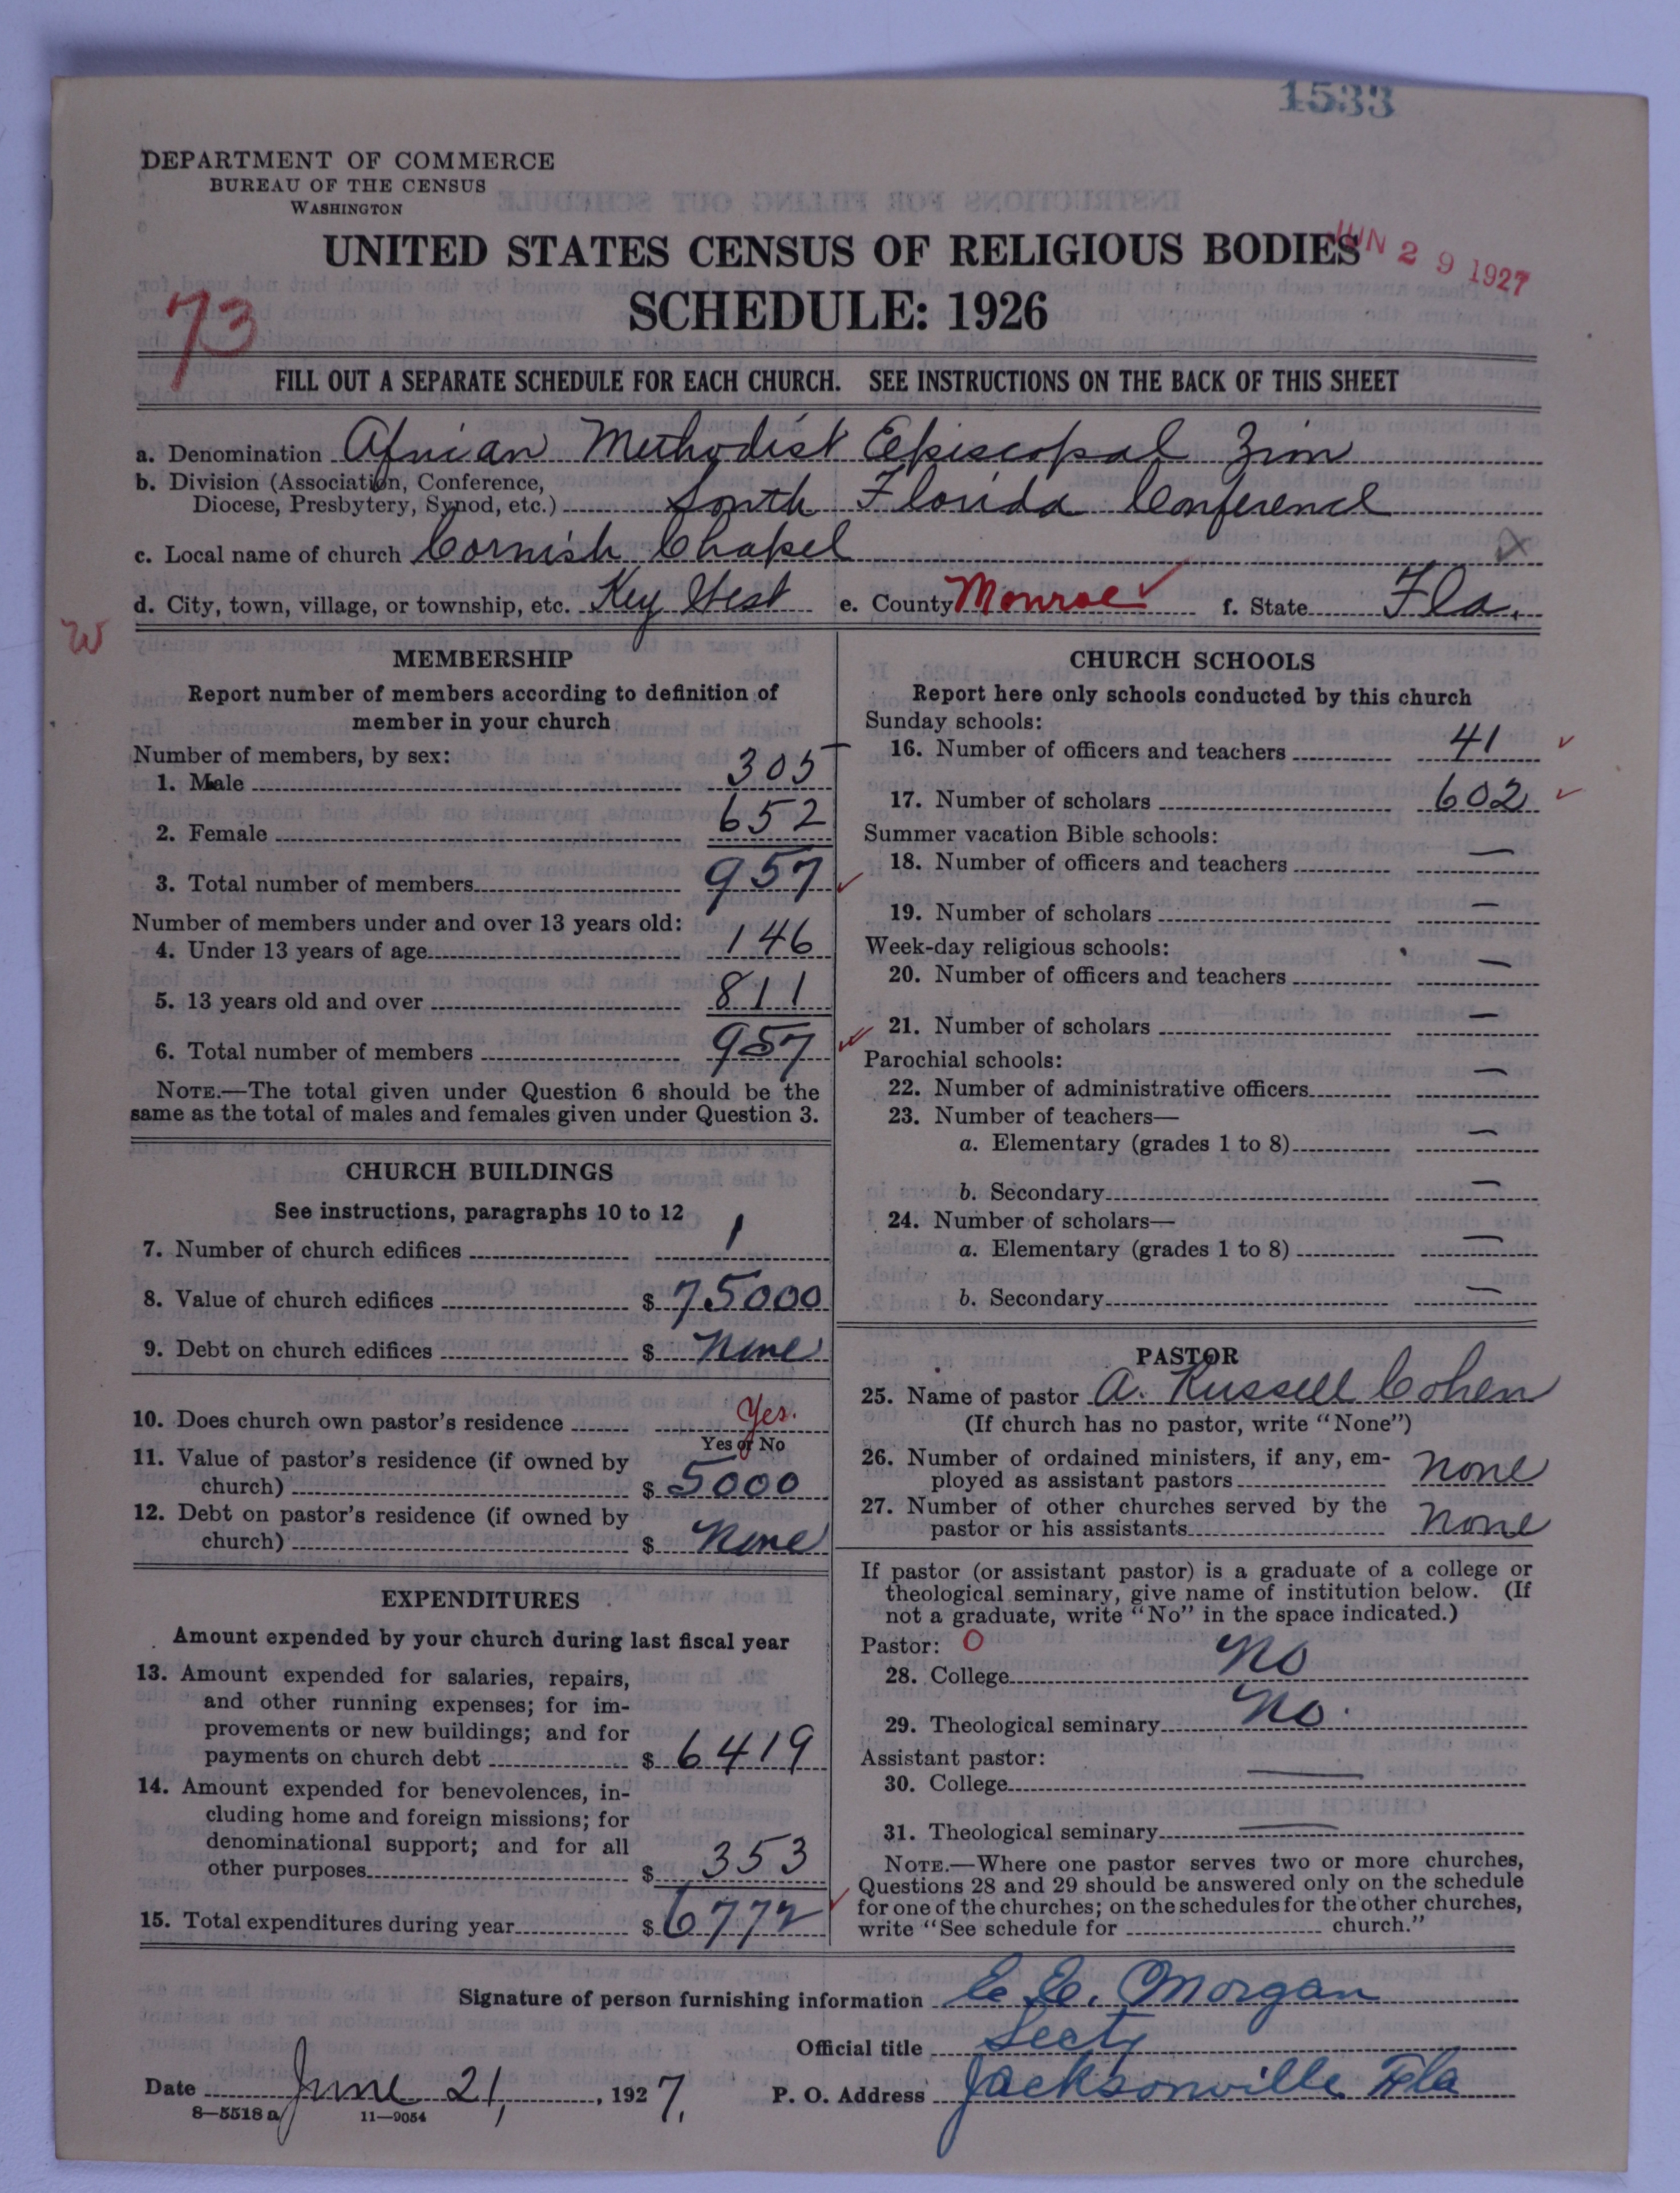 1533
DEPARTMENT OF COMMERCE
BUREAU OF THE CENSUS
WASHINGTON
UNITED STATES CENSUS OF RELIGIOUS BODIES
JUN 29 1927
SCHEDULE: 1926
73
FILL OUT A SEPARATE SCHEDULE FOR EACH CHURCH. SEE INSTRUCTIONS ON THE BACK OF THIS SHEET
a. Denomination African Methodist Episcopal Zion
b. Division (Association, Conference,
Diocese, Presbytery, Synod, etc.) South Florida Conference
c. Local name of church Cornish Chapel
d. City, town, village, or township, etc. Key West e. County Monroe f. State Fla.
W
MEMBERSHIP
Report number of members according to definition of
member in your church
Number of members, by sex:
1. Male 305
2. Female 652
3. Total number of members 957
Number of members under and over 13 years old:
4. Under 13 years of age 146
5. 13 years old and over 811
6. Total number of members 957
NOTE.—The total given under Question 6 should be the
same as the total of males and females given under Question 3.
CHURCH BUILDINGS
See instructions, paragraphs 10 to 12
7. Number of church edifices 1
8. Value of church edifices $ 75000
9. Debt on church edifices $ None
10. Does church own pastor's residence Yes.
Yes or No
11. Value of pastor's residence (if owned by
church) $ 5000
12. Debt on pastor's residence (if owned by
church) $ None
EXPENDITURES
Amount expended by your church during last fiscal year
13. Amount expended for salaries, repairs,
and other running expenses; for im-
provements or new buildings; and for
payments on church debt $ 6419
14. Amount expended for benevolences, in-
cluding home and foreign missions; for
denominational support; and for all
other purposes $ 353
15. Total expenditures during year $ 6772
CHURCH SCHOOLS
Report here only schools conducted by this church
Sunday schools:
16. Number of officers and teachers 41
17. Number of scholars 602
Summer vacation Bible schools:
18. Number of officers and teachers —
19. Number of scholars —
Week-day religious schools:
20. Number of officers and teachers —
21. Number of scholars —
Parochial schools:
22. Number of administrative officers —
23. Number of teachers—
a. Elementary (grades 1 to 8) —
b. Secondary —
24. Number of scholars—
a. Elementary (grades 1 to 8) —
b. Secondary —
PASTOR
25. Name of pastor A. Russell Cohen
(If church has no pastor, write "None")
26. Number of ordained ministers, if any, em-
ployed as assistant pastors none
27. Number of other churches served by the
pastor or his assistants none
If pastor (or assistant pastor) is a graduate of a college or
theological seminary, give name of institution below. (If
not a graduate, write "No" in the space indicated.)
Pastor: O
28. College No
29. Theological seminary No.
Assistant pastor:
30. College —
31. Theological seminary —
NOTE.—Where one pastor serves two or more churches,
Questions 28 and 29 should be answered only on the schedule
for one of the churches; on the schedules for the other churches,
write "See schedule for church."
Signature of person furnishing information E. E. Morgan
Official title Secty
Date June 21, 1927. P. O. Address Jacksonville Fla
8—5518 a 11—9054